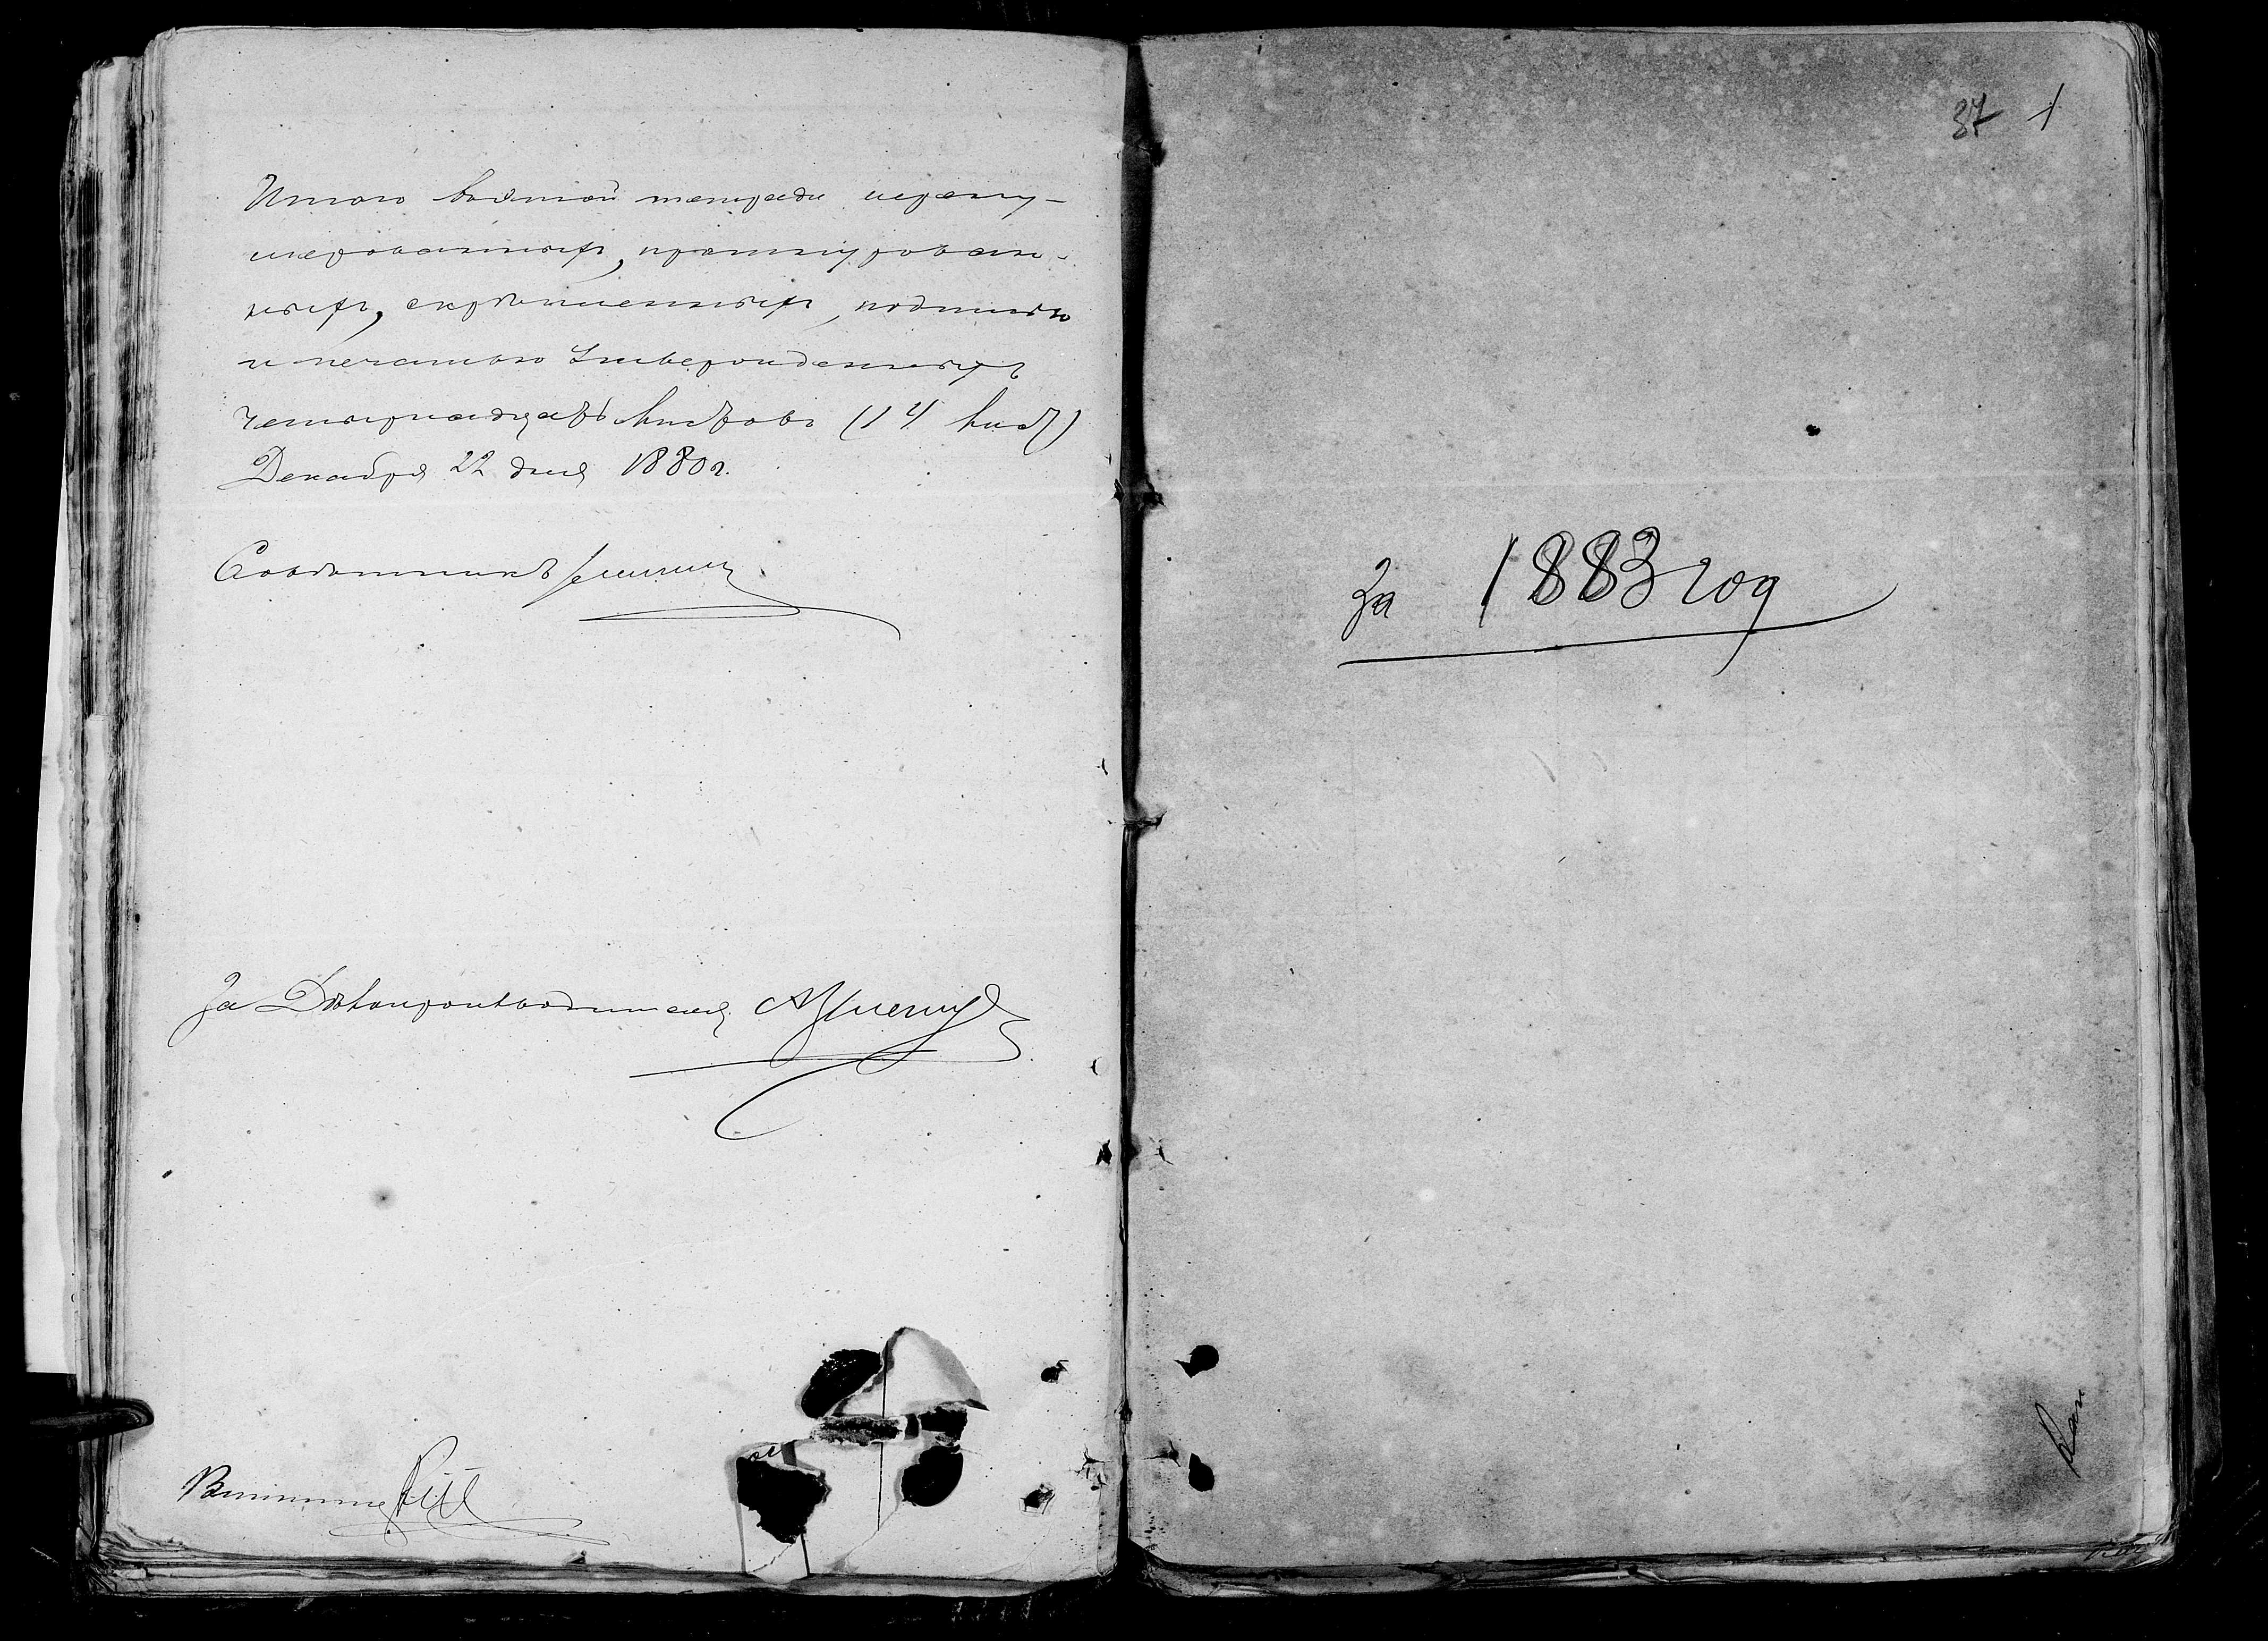 Итого въ этой тетради перену-
мерованныхъ, прошнурован-
ныхъ, скрѣпленныхъ, подписью
и печатью утвержденныхъ
четырнадцать листовъ (14 лист)
Декабря 22 дня 1880 г.
Совѣтникъ
За Дѣлопроизводителя
87 1
За 1883 год